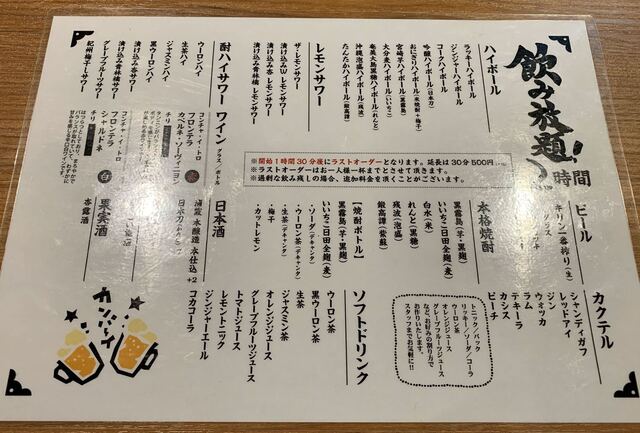 飲み放題!
2時間
ハイボール
ラッキーハイボール
ジンジャーハイボール
コークハイボール
吟醸ハイボール(日本刀)
おにぎりハイボール(米焼酎+梅干)
宮崎芋ハイボール(黒霧島)
大分麦ハイボール(いいちこ)
奄美大島黒糖ハイボール(れんと)
沖縄泡盛ハイボール(残波)
たんたかハイボール(鍛高譚)
レモンサワー
ザ・レモンサワー
漬け込みW レモンサワー
漬け込み杏 レモンサワー
漬け込み青林檎 レモンサワー
酎ハイサワー
ウーロンハイ
生茶ハイ
ジャスミンハイ
黒ウーロンハイ
漬け込み杏サワー
漬け込み青林檎サワー
グレープフルーツサワー
紀州梅干しサワー
※開始1時間30分後にラストオーダーとなります。延長は30分500円
※ラストオーダーはお一人様一杯までとさせて頂きます。
※過剰な飲み残しの場合、追加料金を頂くことがございます。
ワイン グラス/ボトル
コンチャ・イ・トロ
フロンテラ
カベルネ・ソーヴィニヨン
チリ
赤
コンチャ・イ・トロ
フロンテラ
シャルドネ
チリ
白
ビール
キリン一番搾り(生)
本格焼酎
黒霧島(芋・黒麹)
いいちこ日田全麹(麦)
白水(米)
れんと(黒糖)
残波(泡盛)
鍛高譚(紫蘇)
【焼酎ボトル】
黒霧島(芋・黒麹)
いいちこ日田全麹(麦)
・ソーダ(デキャンタ)
・ウーロン茶(デキャンタ)
・生茶(デキャンタ)
・梅干
・カットレモン
日本酒
浦霞 本醸造 本仕込 +2
果実酒
杏露酒
カクテル
シャンディガフ
レッドアイ
ジン
ウォッカ
テキーラ
ラム
カシス
ピーチ
トニック/バック
リッキー/ソーダ/コーラ
ウーロン茶
オレンジジュース
グレープフルーツジュース
など、お好みの割り方で
お作りいたします。
スタッフまでお気軽に!!
ソフトドリンク
ウーロン茶
黒ウーロン茶
生茶
ジャスミン茶
オレンジジュース
グレープフルーツジュース
トマトジュース
レモントニック
ジンジャーエール
コカコーラ
カンパーイ